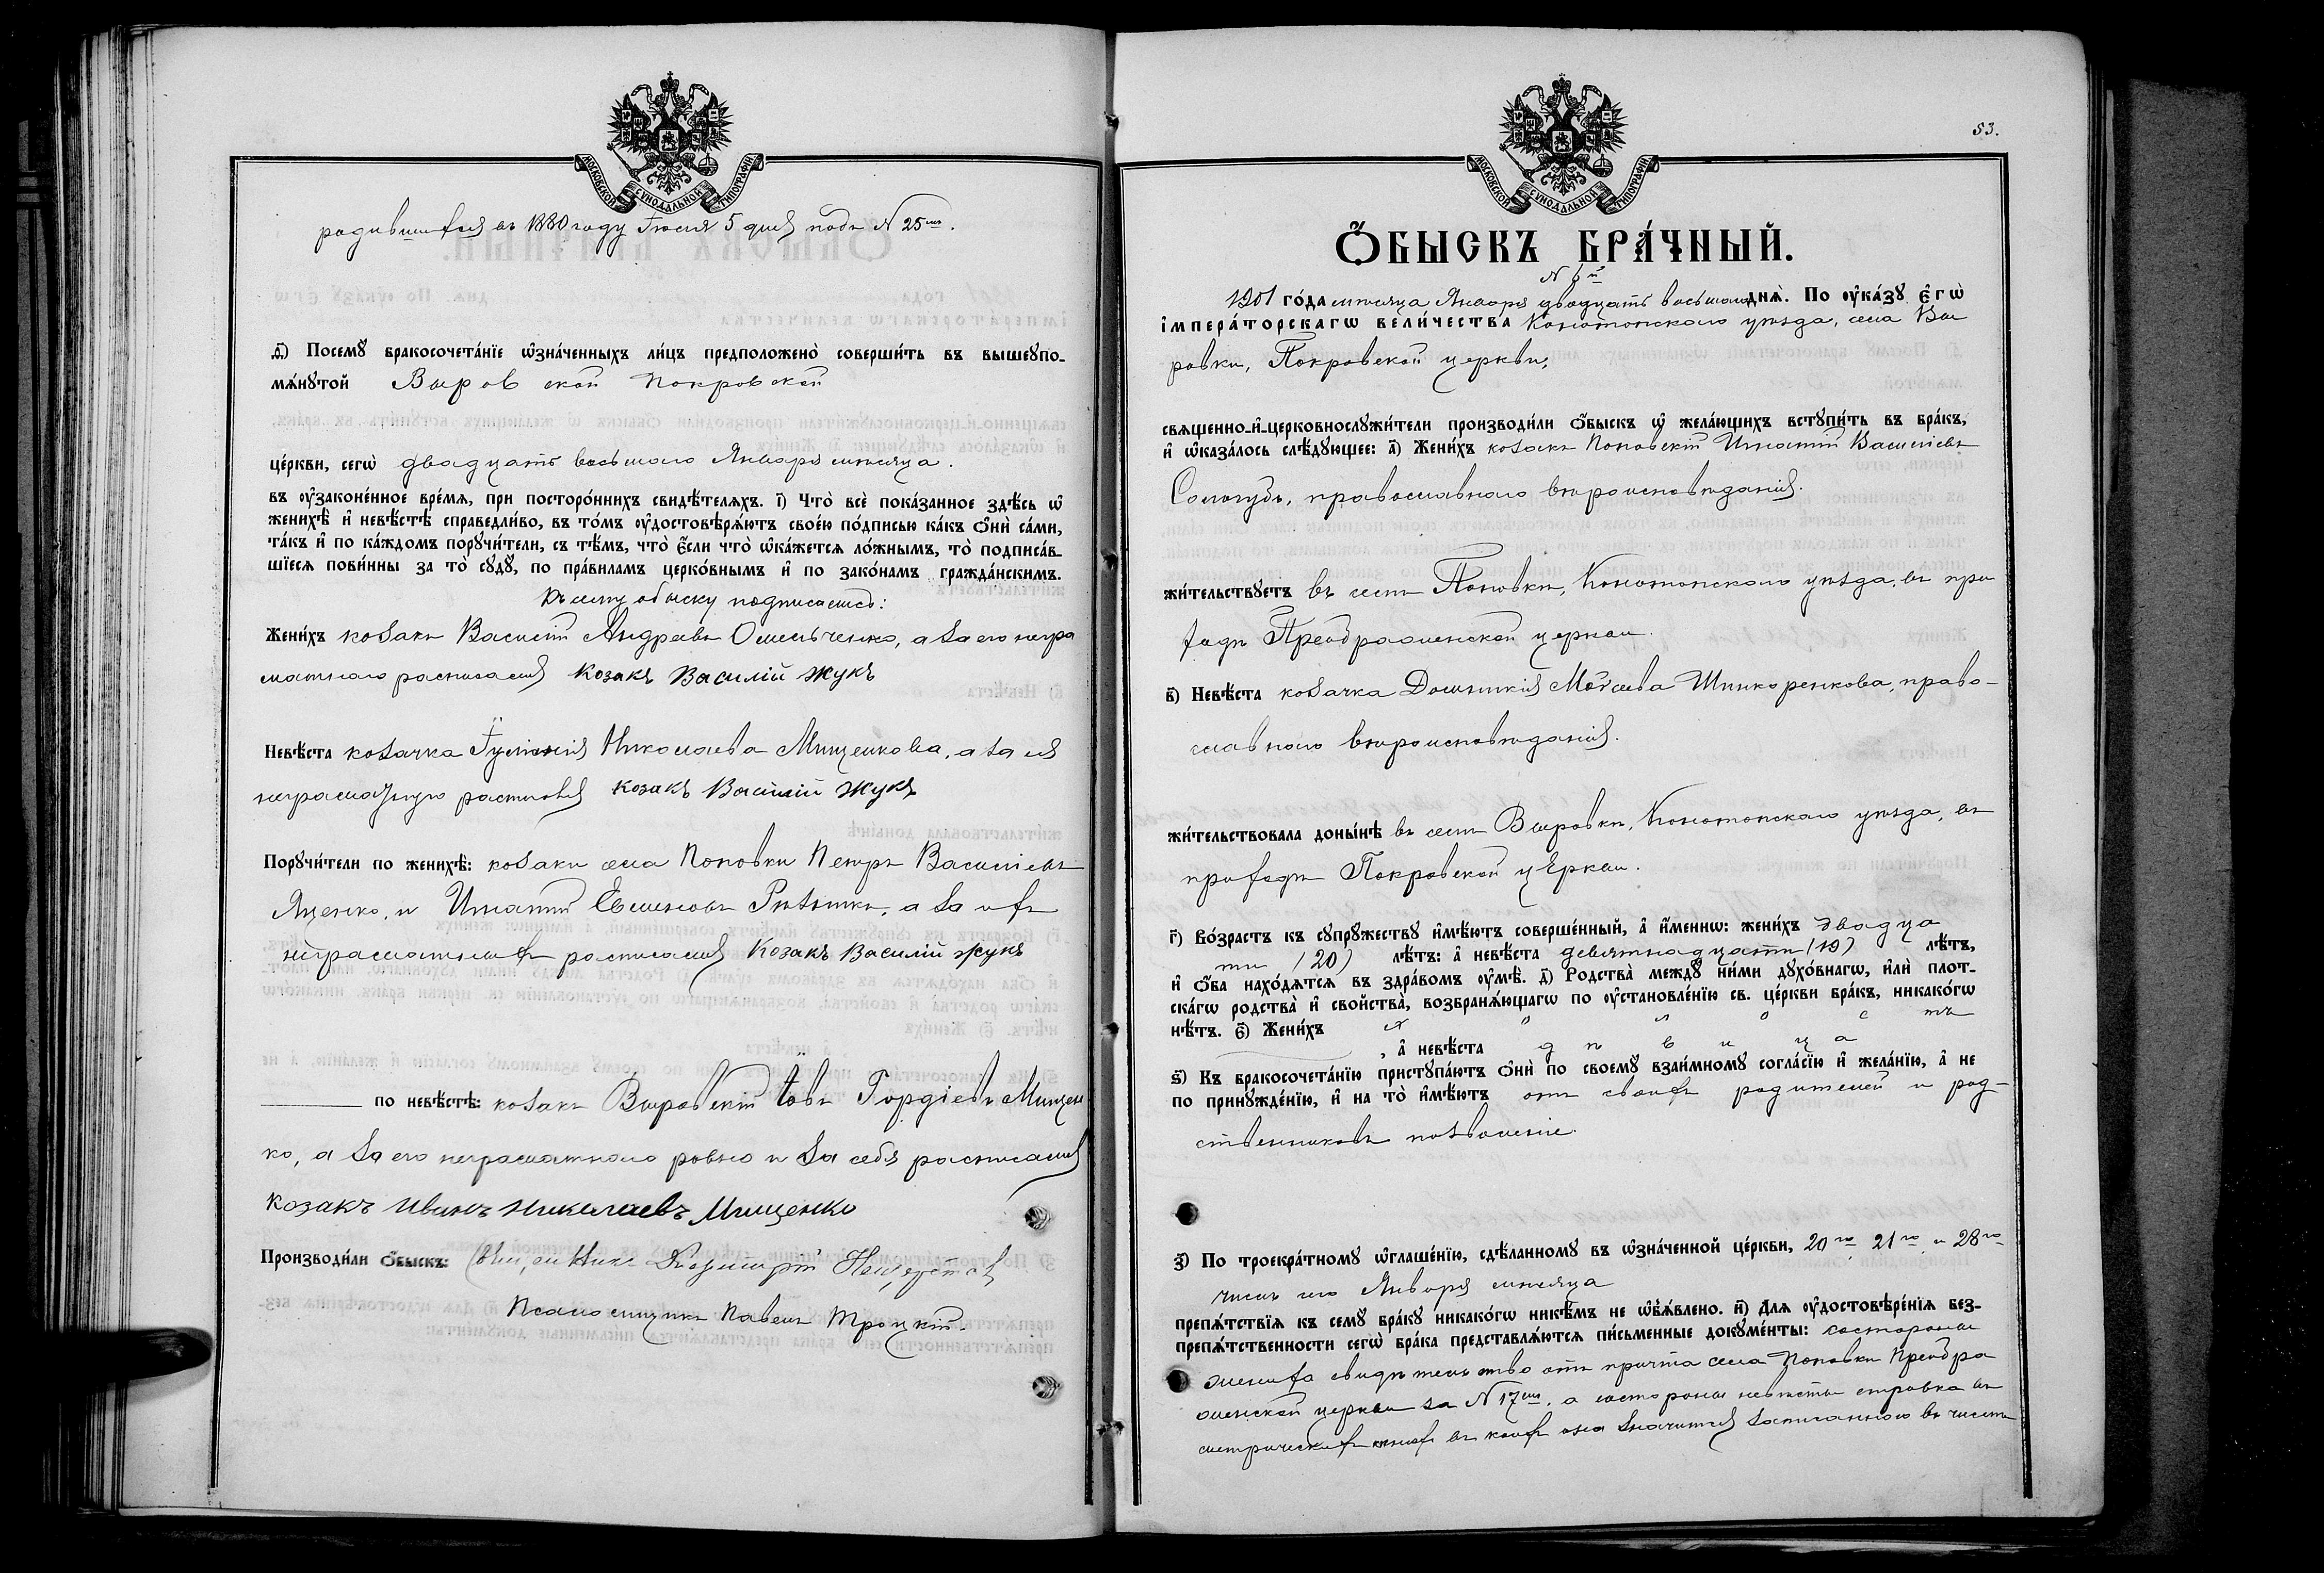 МОСКОВСКОЙ СѴНОДАЛЬНОЙ ТИПОГРАФІИ
родившеюся въ 1880 году Іюня 5 дня подъ № 25мъ.
д҃і) Посемꙋ̀ бракосочета́нїе ѡ҆зна́ченныхъ ли́цъ предположено̀ соверши́ть въ вышеꙋпо-
мѧ́нꙋтой Выровской Покровской
це́ркви, сегѡ̀ двадцать восьмого Января мѣсяца.
въ ᲂу҆законе́нное вре́мѧ, при посторо́ннихъ свидѣ́телѧхъ. і҃) Что̀ всѐ пока́занное здѣ́сь ѡ҆
женихѣ̀ и҆ невѣ́стѣ справедли́во, въ то́мъ ᲂу҆достовѣрѧ́ютъ свое́ю по́дписью ка́къ ѻ҆нѝ са́ми,
та́къ и҆ по ка́ждомъ порꙋчи́тели, съ тѣ́мъ, что̀ є҆́сли что̀ ѡ҆ка́жетсѧ ло́жнымъ, то̀ подписа́в-
шїесѧ пови́нны за то̀ сꙋдꙋ̀, по пра́виламъ церко́внымъ и҆ по зако́намъ гражда́нскимъ.
Къ сему обыску подписались:
Жени́хъ козакъ Василій Андреевъ Омельченко, а за его негра
мотного росписался Козакъ Василій Жукъ
Невѣ́ста козачка Іуліанія Николаева Мищенкова, а за ея
неграмотную росписался Козакъ Василій Жукъ
Порꙋчи́тели по женихѣ̀: козаки села Поповки Петръ Васильевъ
Яценко, и Игнатій а за ихъ
неграмотныхъ росписался Козакъ Василій Жукъ
по невѣ́стѣ: козакъ Выровскій Іовъ Гордіевъ Мищен
ко, а за его неграмотного ровно и за себя росписался
козакъ Иванъ Николаевъ Мищенко
Производи́ли ѻ҆́быскъ: Священникъ Димитрій
Псаломщикъ Павелъ Троцкій.
53.
МОСКОВСКОЙ СѴНОДАЛЬНОЙ ТИПОГРАФІИ
Ѻ҆́БЫСКЪ БРА́ЧНЫЙ.
№ 6й
1901 го́да мѣсяца Января двадцать восьмого днѧ̀. По ᲂу҆ка́зꙋ є҆гѡ̀
і҆мпера́торскагѡ вели́чества Конотопского уѣзда, села Вы
ровки, Покровской церкви,
свѧщенно-и҆-церковнослꙋжи́тели производи́ли ѻ҆́быскъ ѡ҆ жела́ющихъ встꙋпи́ть въ бра́къ,
и҆ ѡ҆каза́лось слѣ́дꙋющее: а҃) Жени́хъ козакъ Поповскій Игнатій Васильевъ
Сологубъ, православного вѣроисповѣданія.
жи́тельствꙋетъ въ селѣ Поповкѣ, Конотопского уѣзда, въ при
ходѣ Преображенской церкви.
в҃) Невѣ́ста козачка Домникія Моѵсеева Шинкоренкова, право-
славного вѣроисповѣданія.
жи́тельствовала донынѣ въ селѣ Выровкѣ, Конотопского уѣзда, въ
приходѣ Покровской церкви.
г҃) Во́зрастъ къ сꙋпрꙋ́жествꙋ и҆мѣ́ютъ соверше́нный, а҆ и҆́меннѡ: жени́хъ двадца
ти (20) лѣ́тъ: а҆ невѣ́ста девятнадцати (19) лѣ́тъ,
и҆ ѻ҆́ба нахо́дѧтсѧ въ здра́вомъ ᲂу҆мѣ̀. д҃) Родства̀ междꙋ̀ ни́ми дꙋхо́внагѡ, и҆лѝ плот-
ска́гѡ родства̀ и҆ сво́йства, возбранѧ́ющагѡ по ᲂу҆становле́нїю св. це́ркви бра́къ, никако́гѡ
нѣ́тъ. є҃) Жени́хъ холостъ
, а҆ невѣ́ста дѣвица
ѕ҃) Къ бракосочета́нїю пристꙋпа́ютъ ѻ҆нѝ по своемꙋ̀ взаи́мномꙋ согла́сїю и҆ жела́нїю, а҆ не
по принꙋжде́нїю, и҆ на то̀ и҆мѣ́ютъ отъ своихъ родителей и род-
ственниковъ позволеніе.
з҃) По троекра́тномꙋ ѡ҆глаше́нїю, сдѣ́ланномꙋ въ ѡ҆зна́ченной це́ркви, 20го, 21го, и 28го
чиселъ Января мѣсяца
препѧ́тствїѧ къ семꙋ̀ бра́кꙋ никако́гѡ никѣ́мъ не ѡ҆б̾ѧ́влено. и҃) Длѧ ᲂу҆достовѣре́нїѧ без-
препѧ́тственности сегѡ̀ бра́ка представлѧ́ютсѧ пи́сьменные докꙋме́нты: состороны
жениха свидѣтельство отъ причта села Поповки Преобра
женской церкви за № 17мъ, а состороны невѣсты справка въ
метрическихъ книгъ въ коихъ она значится записанною въ числѣ